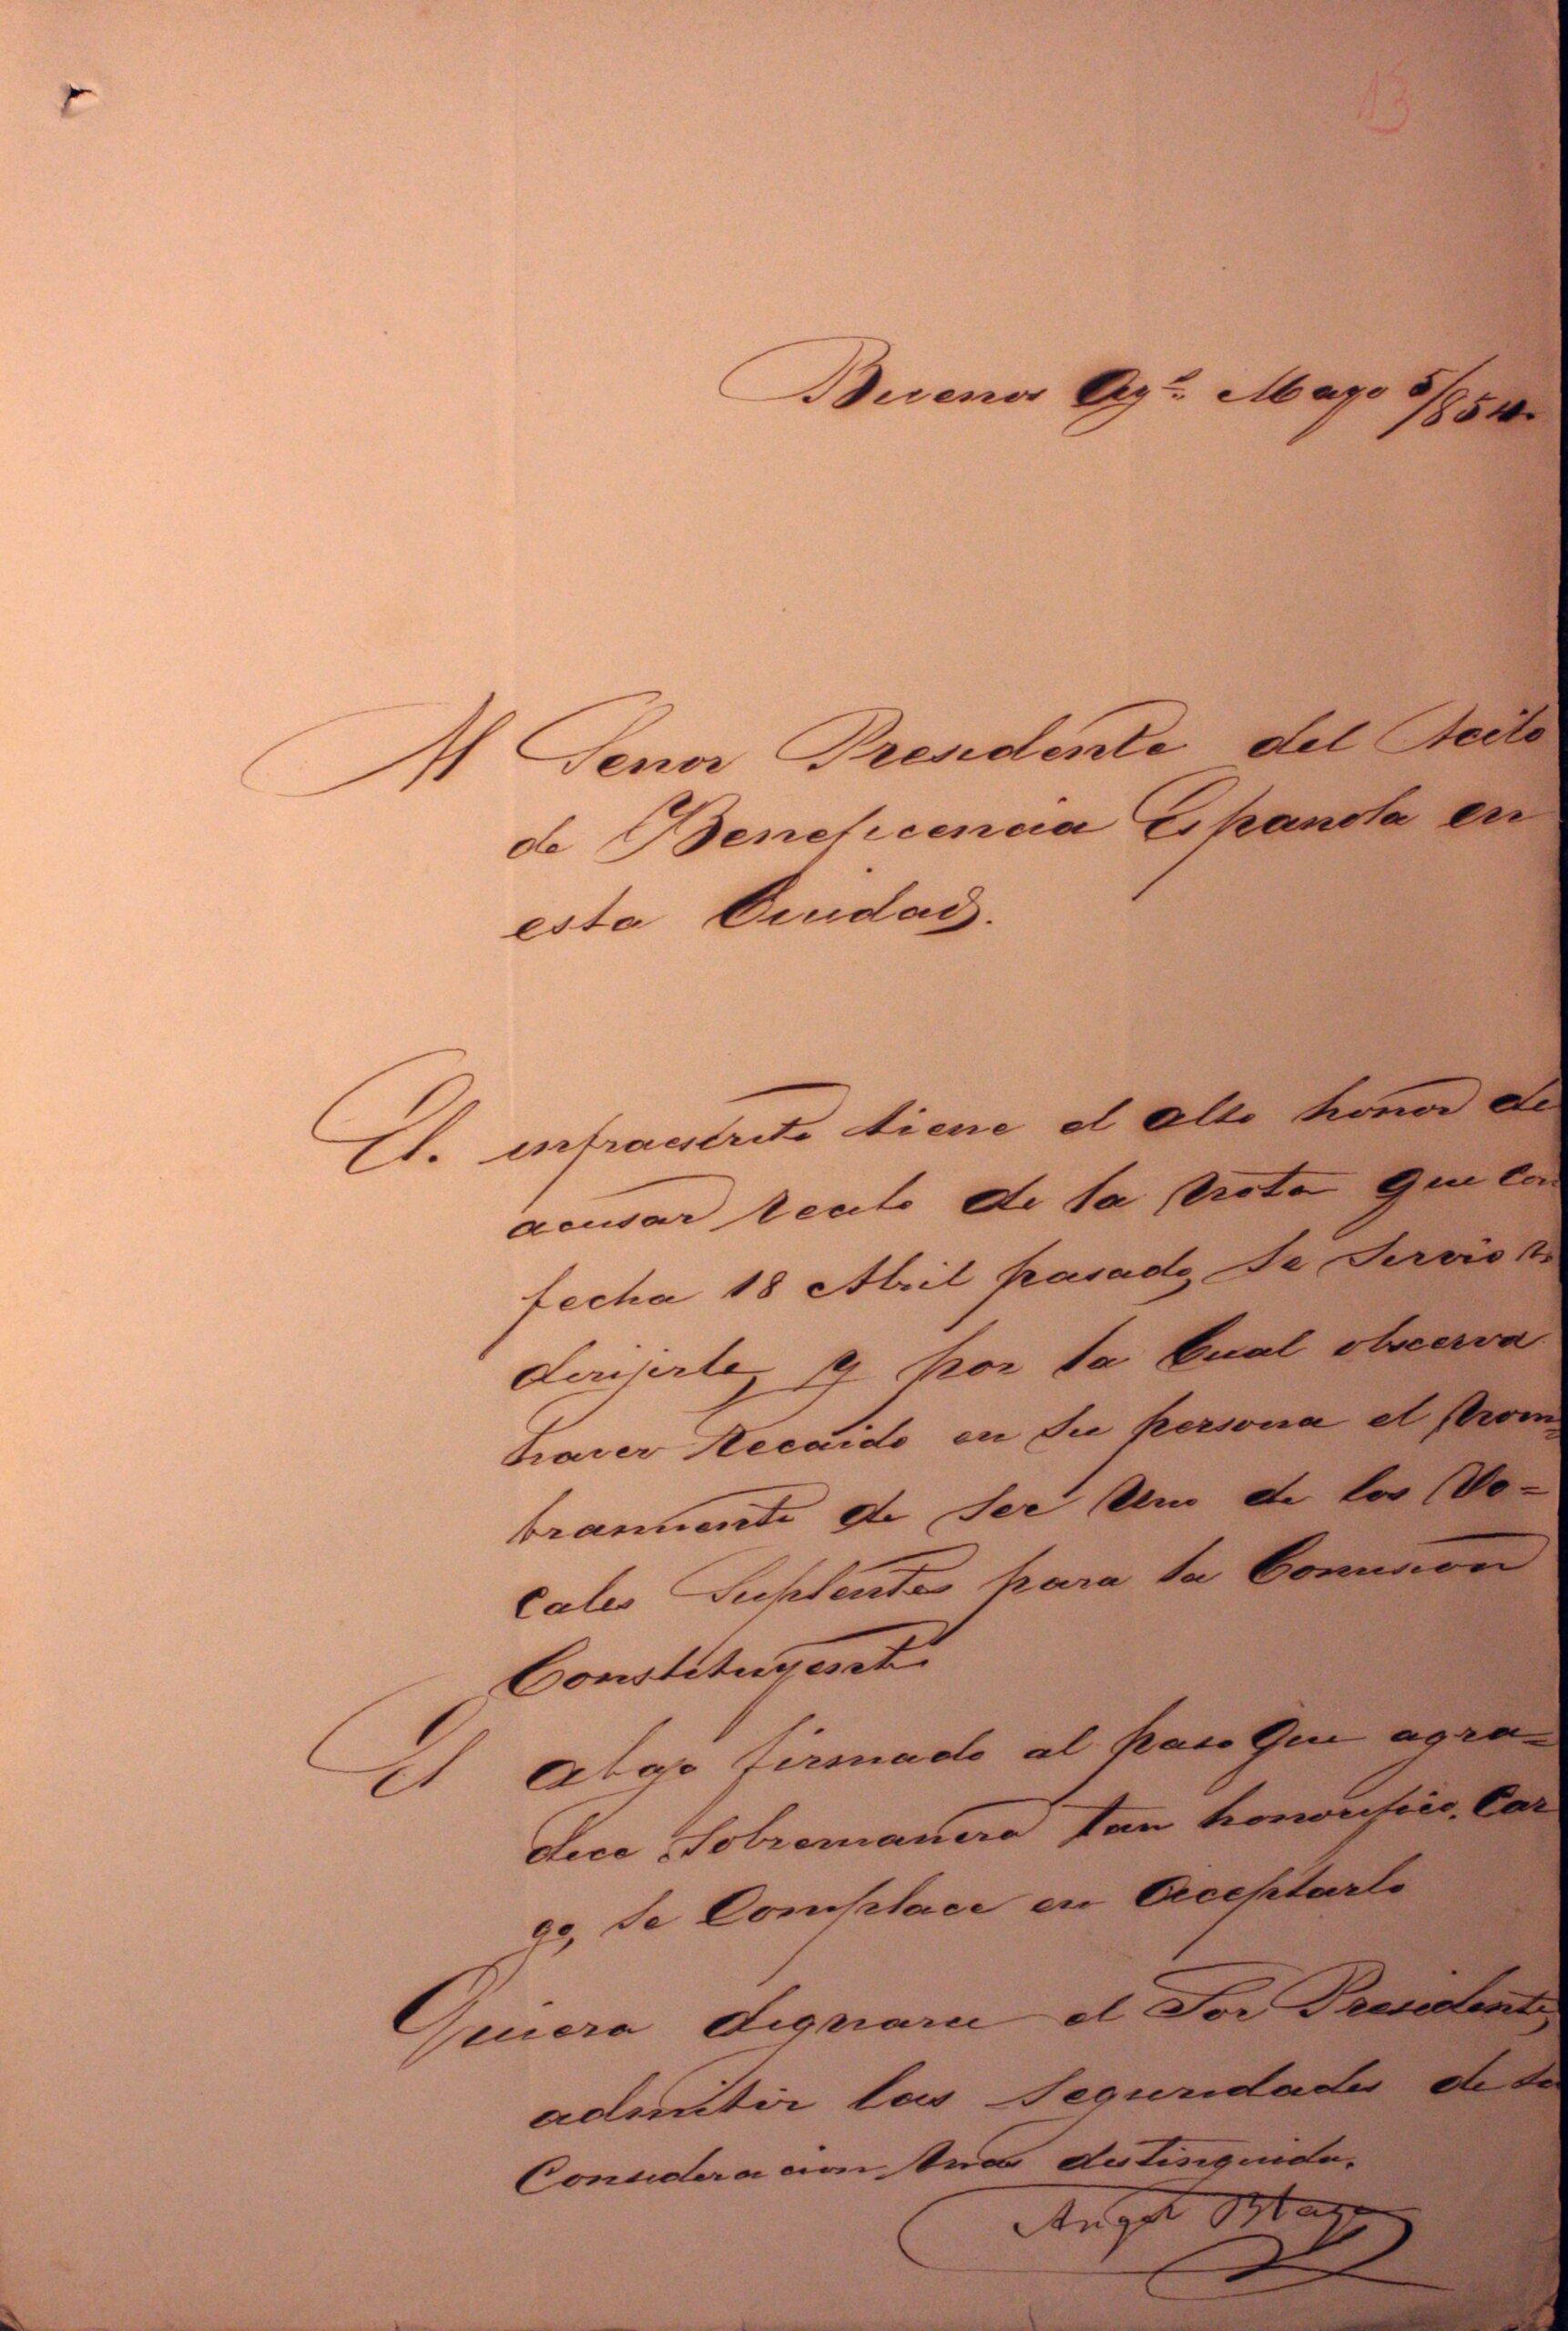 13
Buenos Ay.s Mayo 5/854.
Al Señor Presidente del Acilo
de Beneficencia Española en
esta Ciudad.
El. infraescrito tiene el alto honor de
acusar recibo de la nota que con
fecha 18 Abril pasado, se servio
dirijirle, y por la Cual observa
haver recaido en su persona el nom=
bramiento de ser uno de los Vo=
cales Suplentes para la Comision
Constituyente
El abajo firmado al paso que agra=
dece sobremanera tan honorifico. Car
go, se Complace en aceptarlo
Quiera dignarse el Sor Presidente,
admitir las seguridades de su
Consideracion mas distinguida.
Angel Blaye